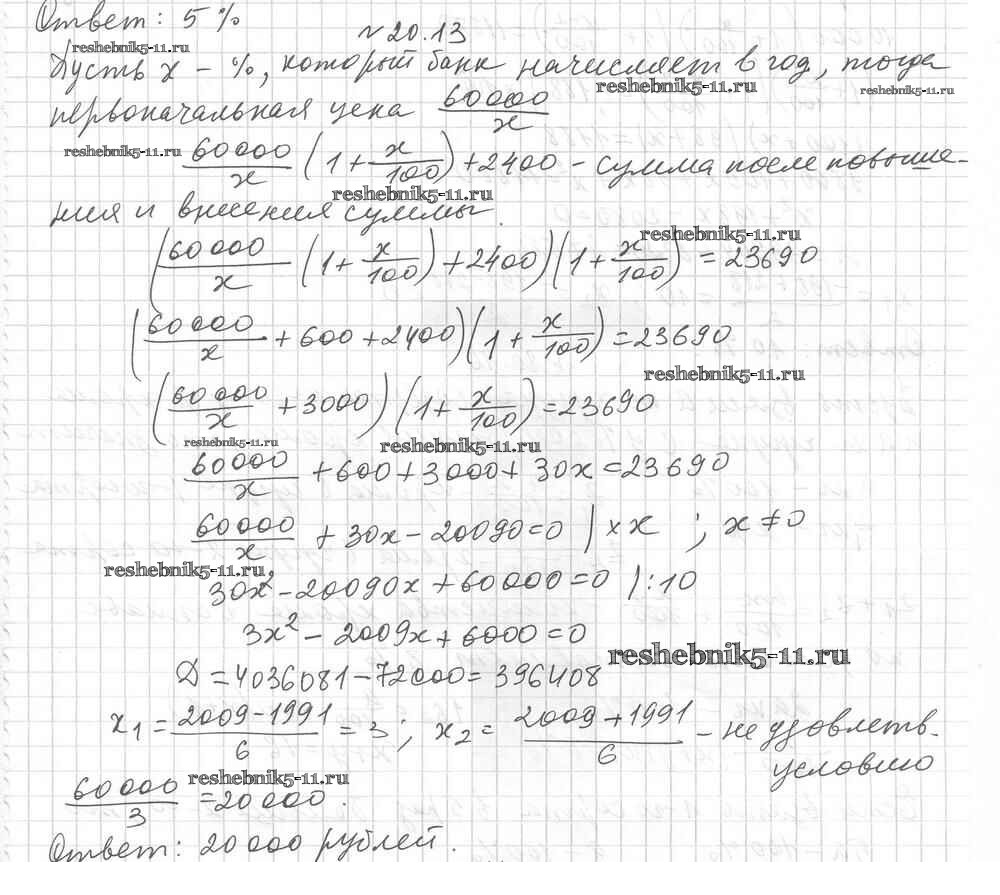 Ответ: 5 %
№ 20.13
reshebnik5-11.ru
Пусть x – %, который банк начисляет в год, тогда
reshebnik5-11.ru
reshebnik5-11.ru
первоначальная цена 60000/x
reshebnik5-11.ru
60000/x (1 + x/100) + 2400 – сумма после повыше-
reshebnik5-11.ru
ния и внесения суммы.
reshebnik5-11.ru
(60000/x (1 + x/100) + 2400)(1 + x/100) = 23690
(60000/x + 600 + 2400)(1 + x/100) = 23690
reshebnik5-11.ru
(60000/x + 3000)(1 + x/100) = 23690
reshebnik5-11.ru
reshebnik5-11.ru
60000/x + 600 + 3000 + 30x = 23690
60000/x + 30x – 20090 = 0 | × x ; x ≠ 0
reshebnik5-11.ru
30x² – 20090x + 60000 = 0 | : 10
3x² – 2009x + 6000 = 0
reshebnik5-11.ru
D = 4036081 – 72000 = 396408
x₁ = (2009 – 1991)/6 = 3 ; x₂ = (2009 + 1991)/6 – не удовлетв.
условию
reshebnik5-11.ru
60000/3 = 20000.
Ответ: 20000 рублей.